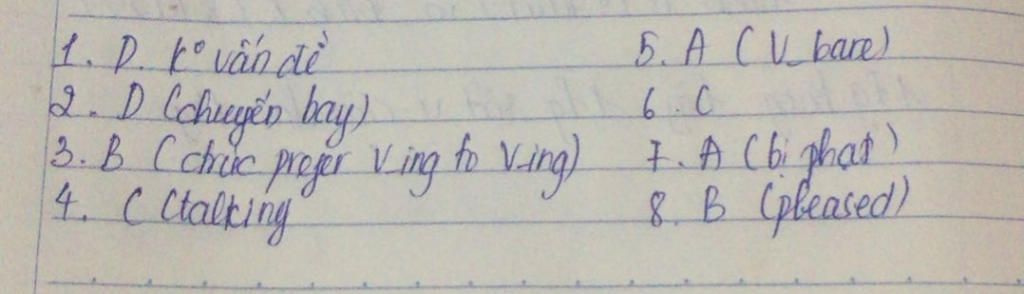 1. D. k° vấn đề
2. D (chuyến bay)
3. B (chúc prefer V_ing to V_ing)
4. C (talking
5. A (V_bare)
6. C
7. A (bị phạt)
8. B (pleased)